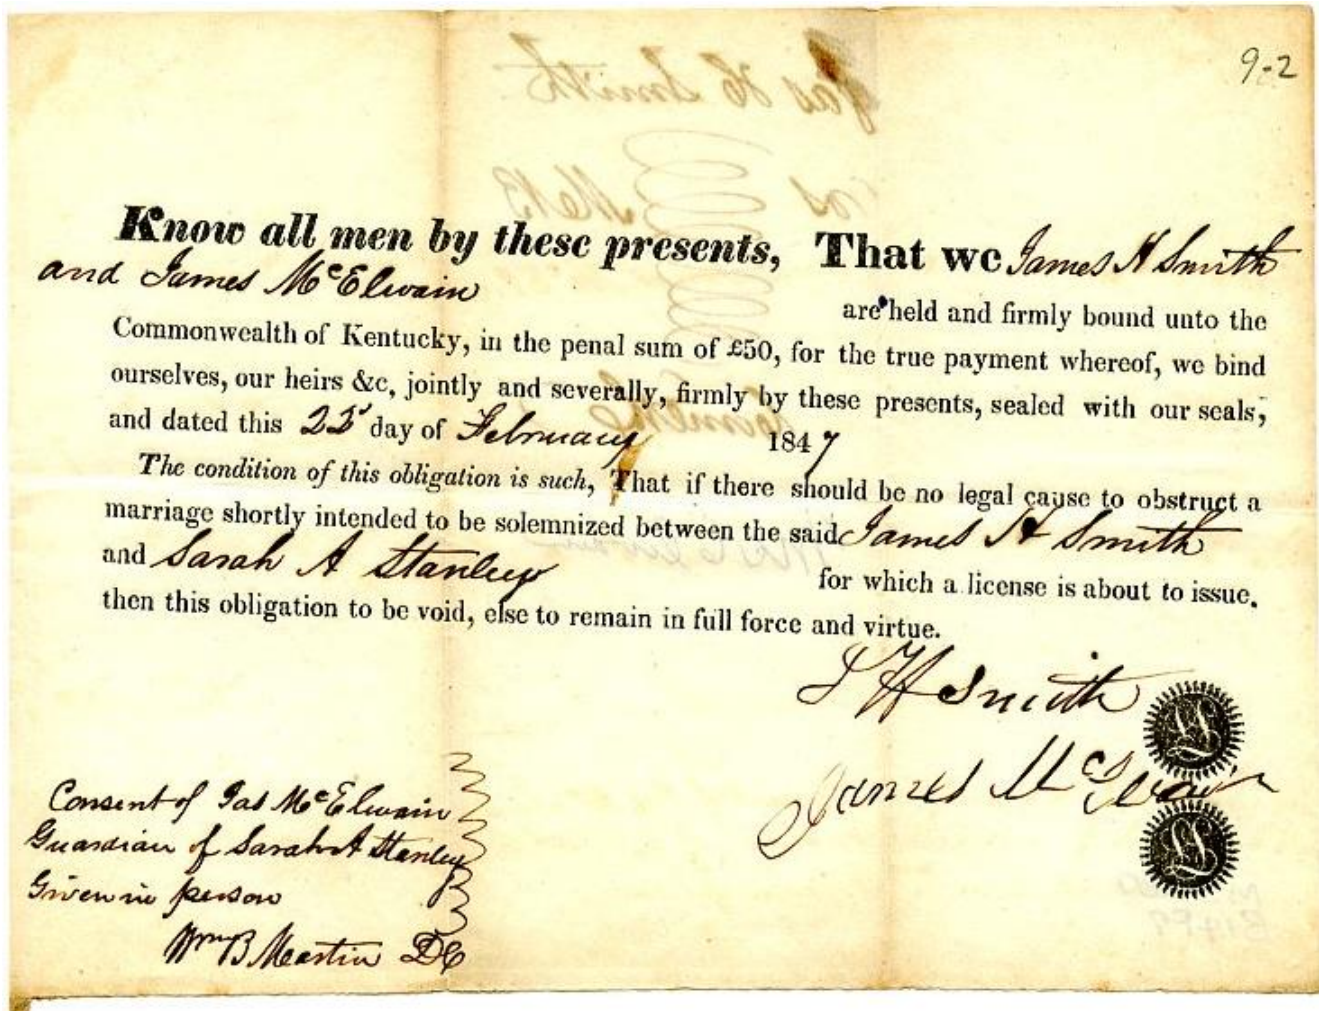 9-2
Know all men by these presents, That we James H Smith
and James McElwain
are held and firmly bound unto the
Commonwealth of Kentucky, in the penal sum of £50, for the true payment whereof, we bind
ourselves, our heirs &c, jointly and severally, firmly by these presents, sealed with our seals,
and dated this 22 day of February 1847
The condition of this obligation is such, That if there should be no legal cause to obstruct a
marriage shortly intended to be solemnized between the said James H Smith
and Sarah A Stanley
for which a license is about to issue.
then this obligation to be void, else to remain in full force and virtue.
J H Smith
James McElwain
Consent of Jas McElwain
Guardian of Sarah A Stanley
Given in person
Wm B Martin DC